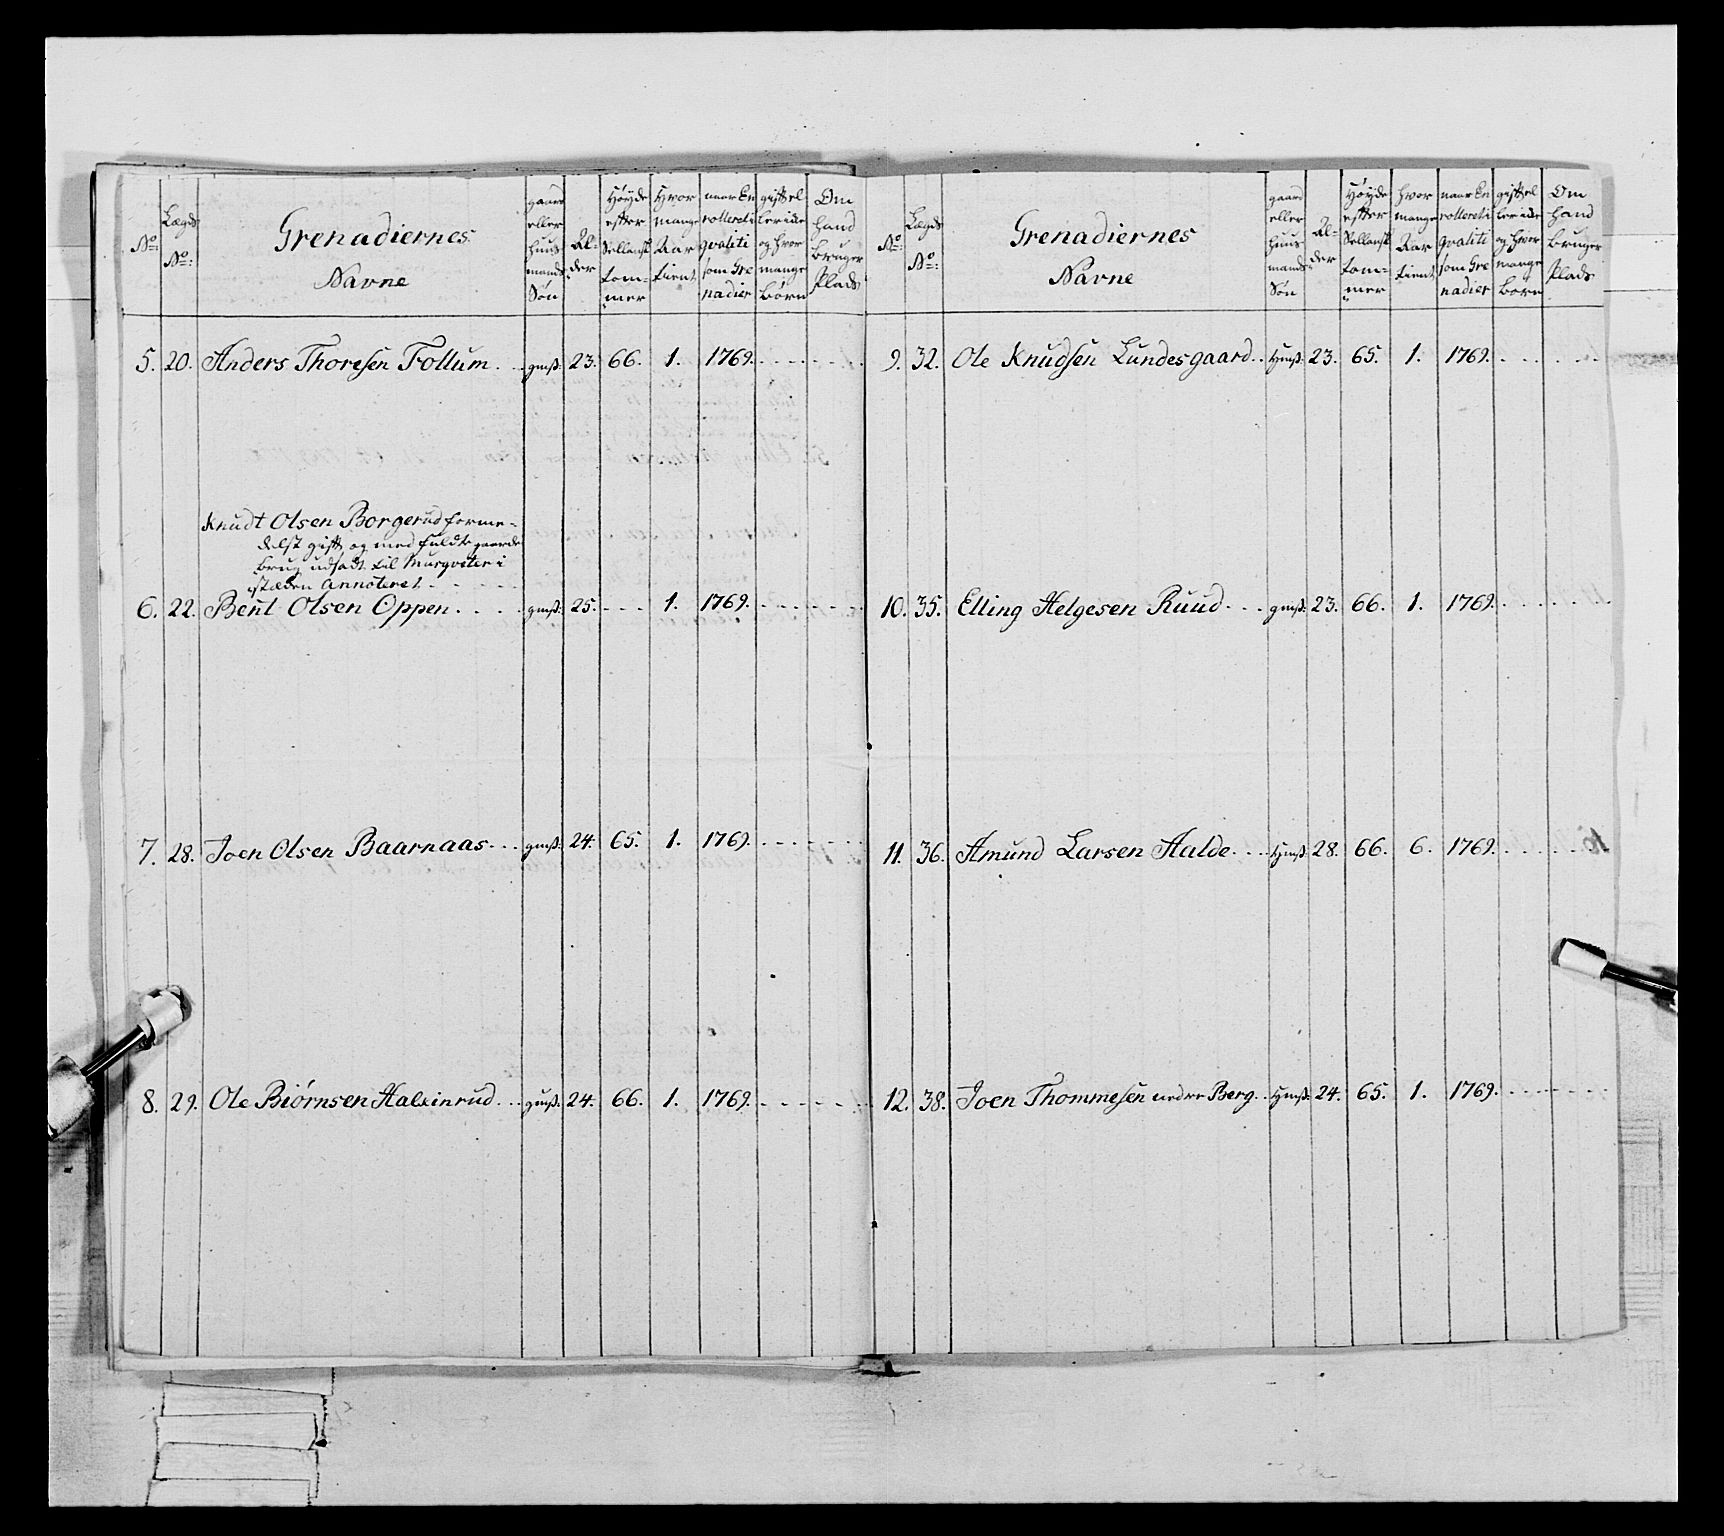 No: Lægds No: Grenadiernes Navne gaard eller huus mands Søn Al- der Høyde efter Sellansk tom- mer Hvor mange Aar tient naar En rolleret i qvalitie som Gre nadier gift el ler ide og hvor mange børn Om hand bruger Plads
5. 20. Anders Thoresen Follum. gmß. 23. 66. 1. 1769.
Knudt Olsen Borgerud forme-
delst gift og med fuldt gaards
brug udsadt til Musqveter i
stæden Annoteret
6. 22. Bent Olsen Oppen. gmß. 25. 1. 1769.
7. 28. Joen Olsen Baarnaas. gmß. 24. 65. 1. 1769.
8. 29. Ole Biørnsen Halsinrud. gmß. 24. 66. 1. 1769.
No: Lægds No: Grenadiernes Navne gaard eller huus mands Søn Al- der Høyde efter Sellansk tom- mer hvor mange Aar tient naar En rolleret i qvalitie som Gre nadier gift el ler ide og hvor mange børn Om hand bruger Plads
9. 32. Ole Knudsen Lundesgaard. Hmß. 23. 65. 1. 1769.
10. 35. Elling Helgesen Ruud. gmß. 23. 66. 1. 1769.
11. 36. Amund Larsen Aalde. Hmß. 28. 66. 6. 1769.
12. 38. Joen Thommesen nedre Berg. Hmß. 24. 65. 1. 1769.